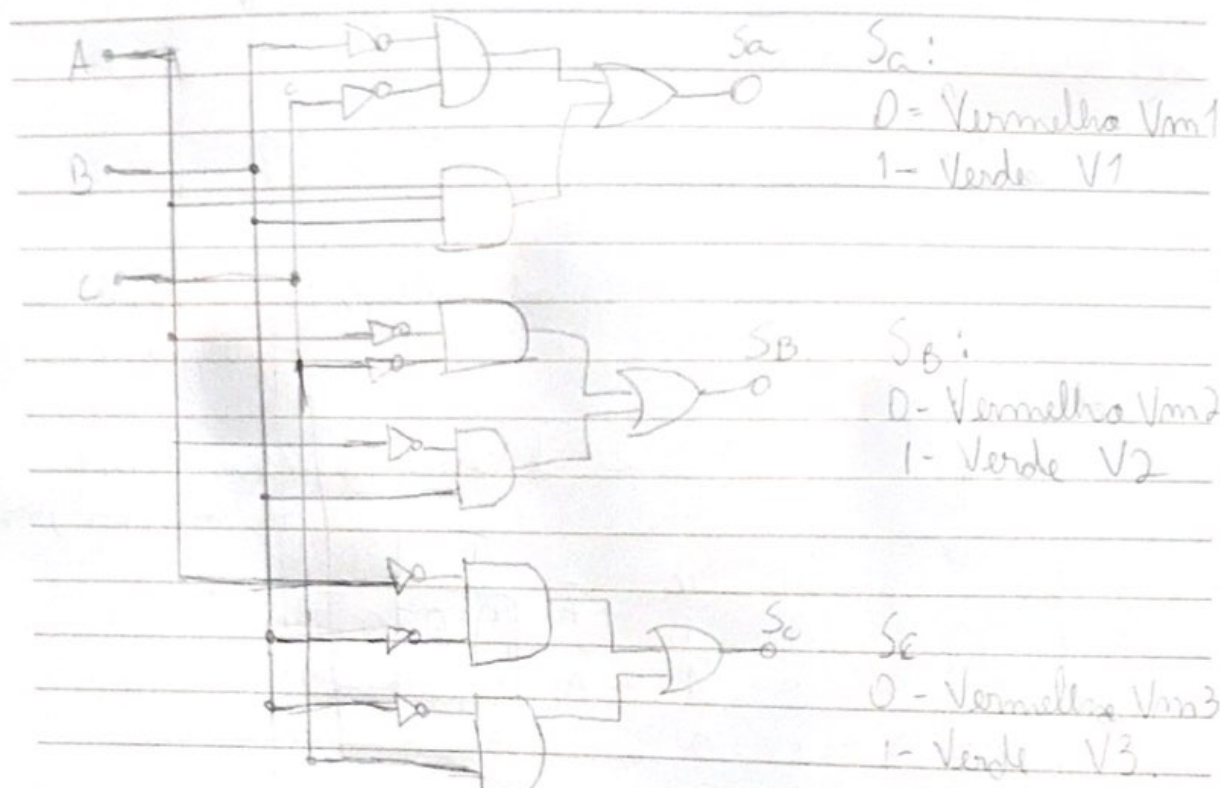 A
B
C
Sa
Sa:
0= Vermelho Vm1
1- Verde V1
SB
SB:
0- Vermelho Vm2
1- Verde V2
Sc
Sc
0- Vermelho Vm3
1- Verde V3.